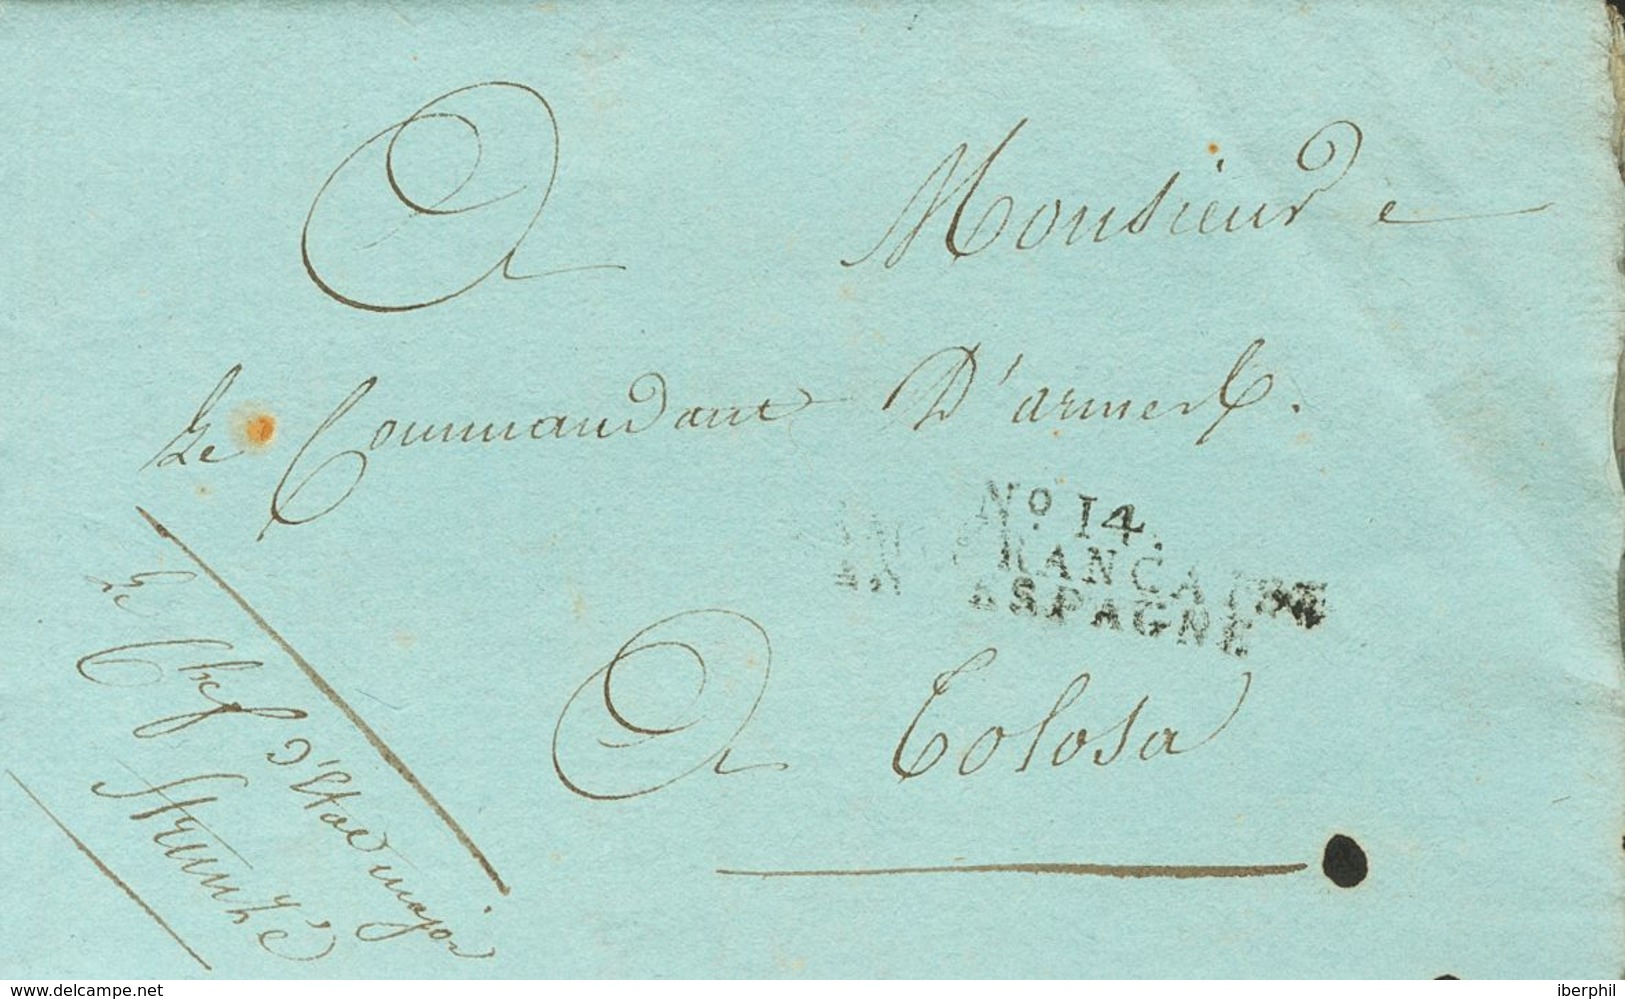 A Monsieur
Le Commandant D'armes
No 14.
FRANCAISE
ESPAGNE
A Tolosa
Le Chef d'Etat major
www.delcampe.net
iberphil